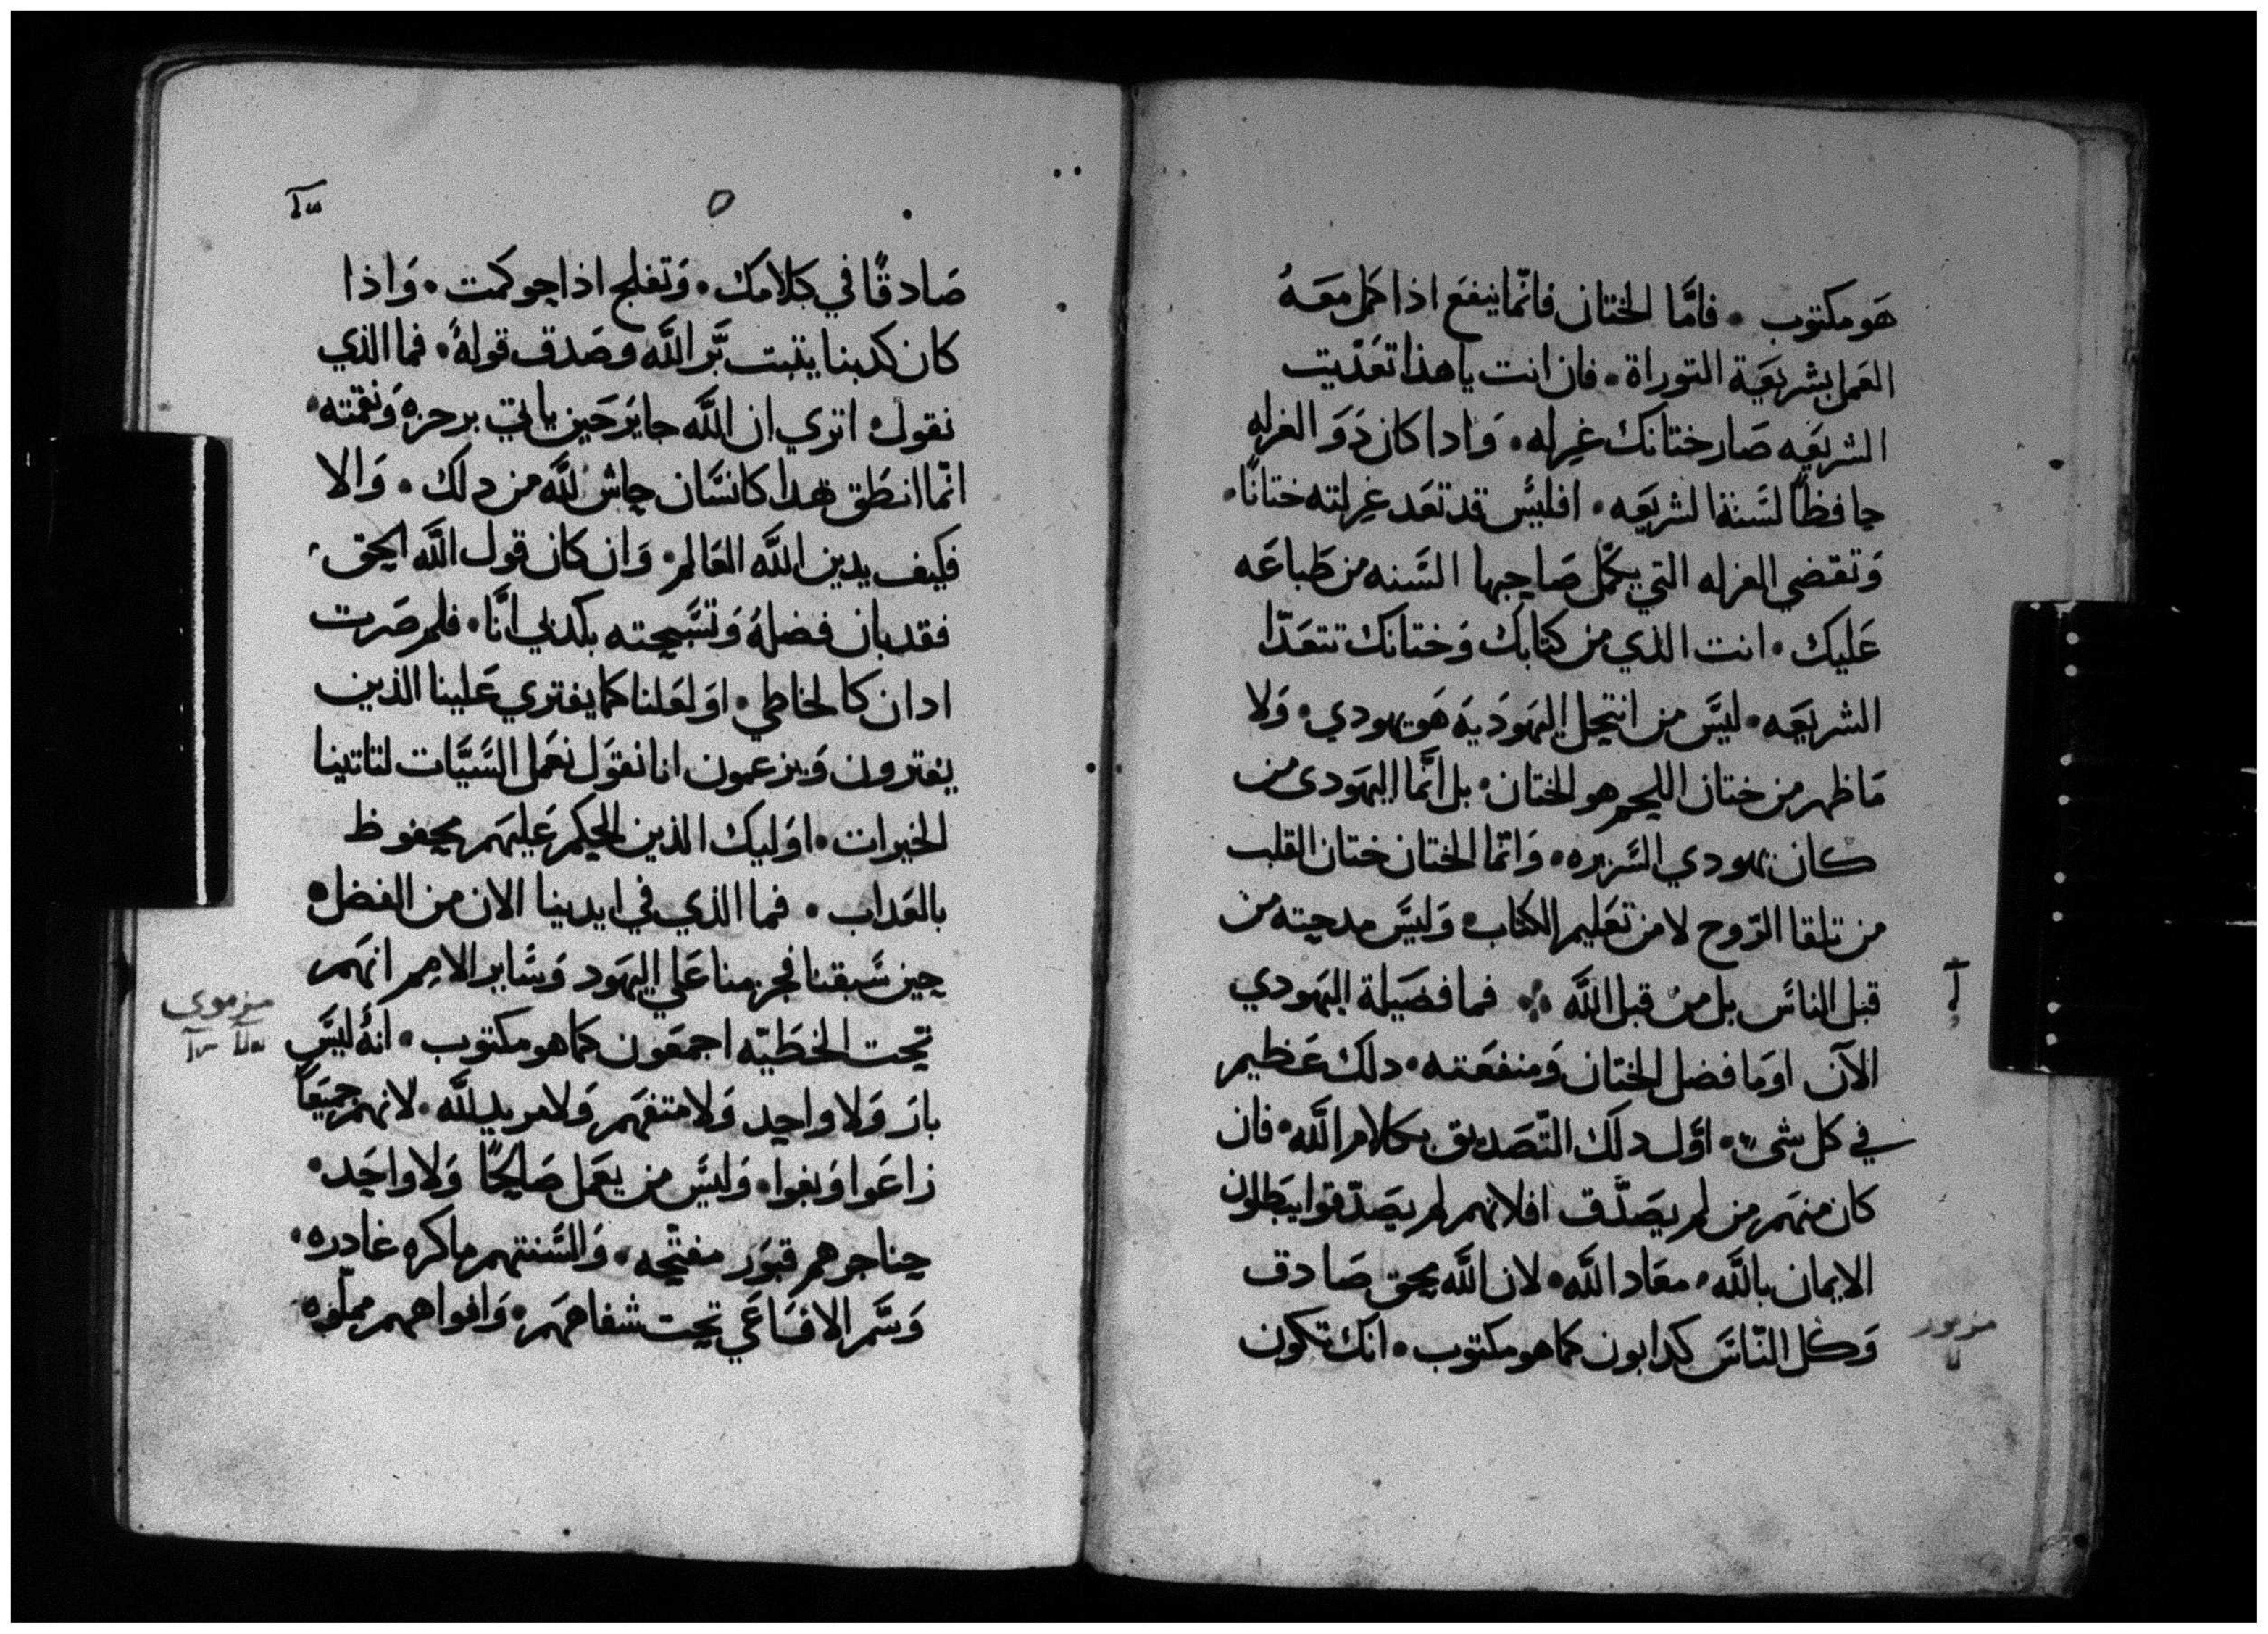 هو مكتوب • فامَّا الختان فانّما ينفع اذا كمل معَهُ
العَمل بشريعَة التوراة • فان انت يا هذا تعَدّيت
الشريعَه صَار ختانك غرله • وَادا كان ذَوَ الغرله
حافظاً لسَنة الشريعَه • افليسَ قد تعَد غرلته ختانًا •
وَتقضي الغرله التي يكمّل صَاحبها السَنه من طَباعَه
عَليك • انت الذي من كتابك وَختانك تتعَدّا
الشريعَه • ليسَ من انتحل اليهَوَديَه هَو يهودي • وَلا
مَا ظهر من ختان اللحم هو الختان • بل انَّما اليهَودى من
كان يهودي السَريره • وَانّما الختان ختان القلب
من تلقا الرّوح لا من تعَليم الكتاب • وَليسَ مدحيته من
قبل الناسَ بل من قبل الله ∴ فما فضَيلة اليهَودي
الآن اومَا فضل الختان وَمنفعَته • دلك عَظيم
في كل شىً • اوَّل دلك التّصَديق بكلام الله • فان
كان منهَم من لم يصَدَّق افلانهم لم يصَدّقوا يبَطلون
الايمان بالله • معَاد الله • لان الله محق صَادق
وَكل النّاسَ كدابون كما هو مكتوب • انك تكون
مزمور
صَادقًا في كلامك • وَتفلج اذا حوكمت • وَاذا
كان كدبنا يتبت بَّر الله وصَدق قولهُ • فما الذي
نقول • اتري ان الله جاير حَين ياتي برجزه وَنقمته •
انّما انطَق هدا كانسَان حاش لله من دلك • وَالا
فكيف يدين الله العَالم • وَان كان قول الله الحق •
فقد بان فضلهُ وَتسَبحته بكدبي انَا • فلم صَرت
ادان كالخاطي • اوَ لعَلنا كما يفتري عَلينا الذين
يفترون وَيزعمون انا نقوَل نعَمل السَيَّات لتاتينا
الخيرات • اوَليك الذين الحكم عَليهَم محفوظ
بالعَداب • فما الذي في ايدينا الان من الفضل •
حين سَبقنا فجزمنا عَلي اليهَود وَسَاير الامم انهَم
تحت الخطَيّه اجمعَون كما هو مكتوب • انهُ ليسَ
بارَ وَلا واحد وَلا متفهَم وَلا مريد لله • لانهم جميَعاً
زاعَوا وَبغوا • وَليسَ من يعَمل صَالحًا وَلا واحَد •
حناجرهم قبوَر مفتحه • وَالسَنتهم ماكره غادره •
وَسَم الافسَاعَي تحت شفاههَم • وَافواههم مملوه